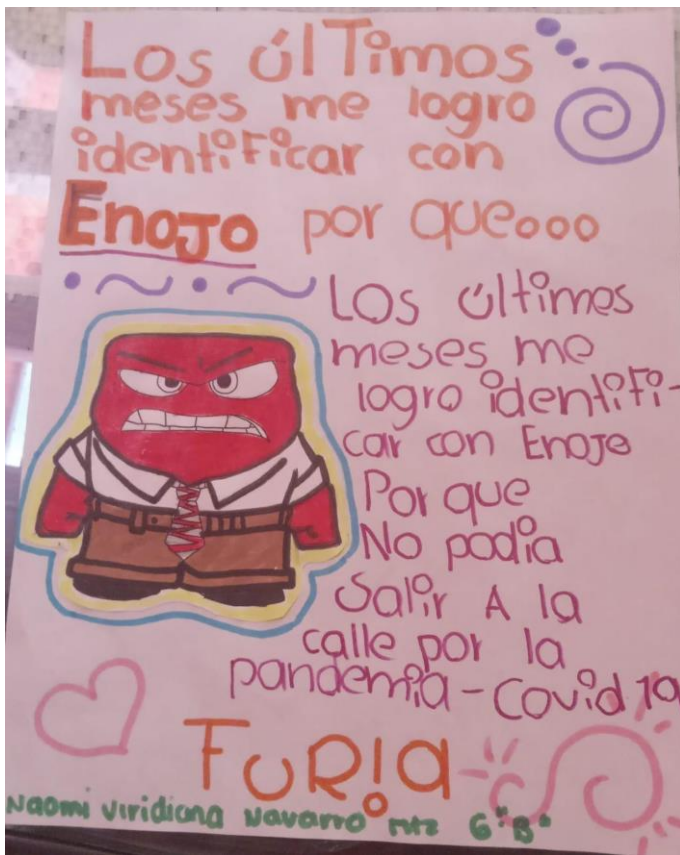 Los úlTimos
meses me logro
identificar con
Enojo por que...
Los últimos
meses me
logro identifi-
car con Enojo
Por que
No podia
Salir A la
calle por la
pandemia - Covid 19
FuRia
Naomi Viridiana Navarro mtz 6"B"